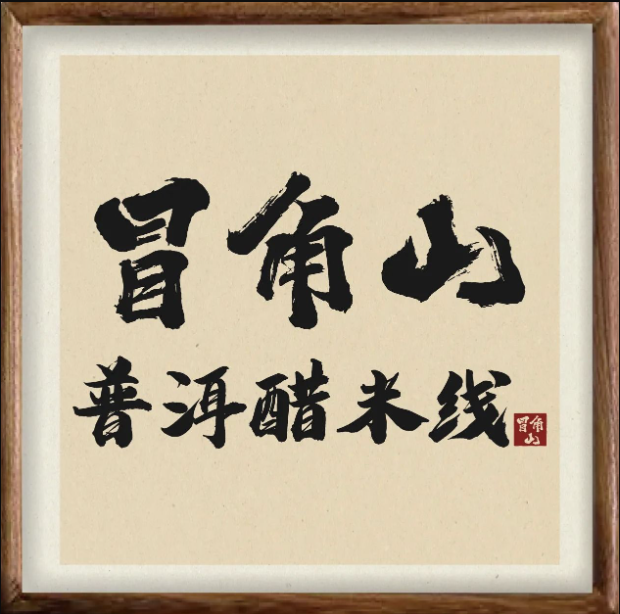 冒角山
普洱醋米线
冒角山